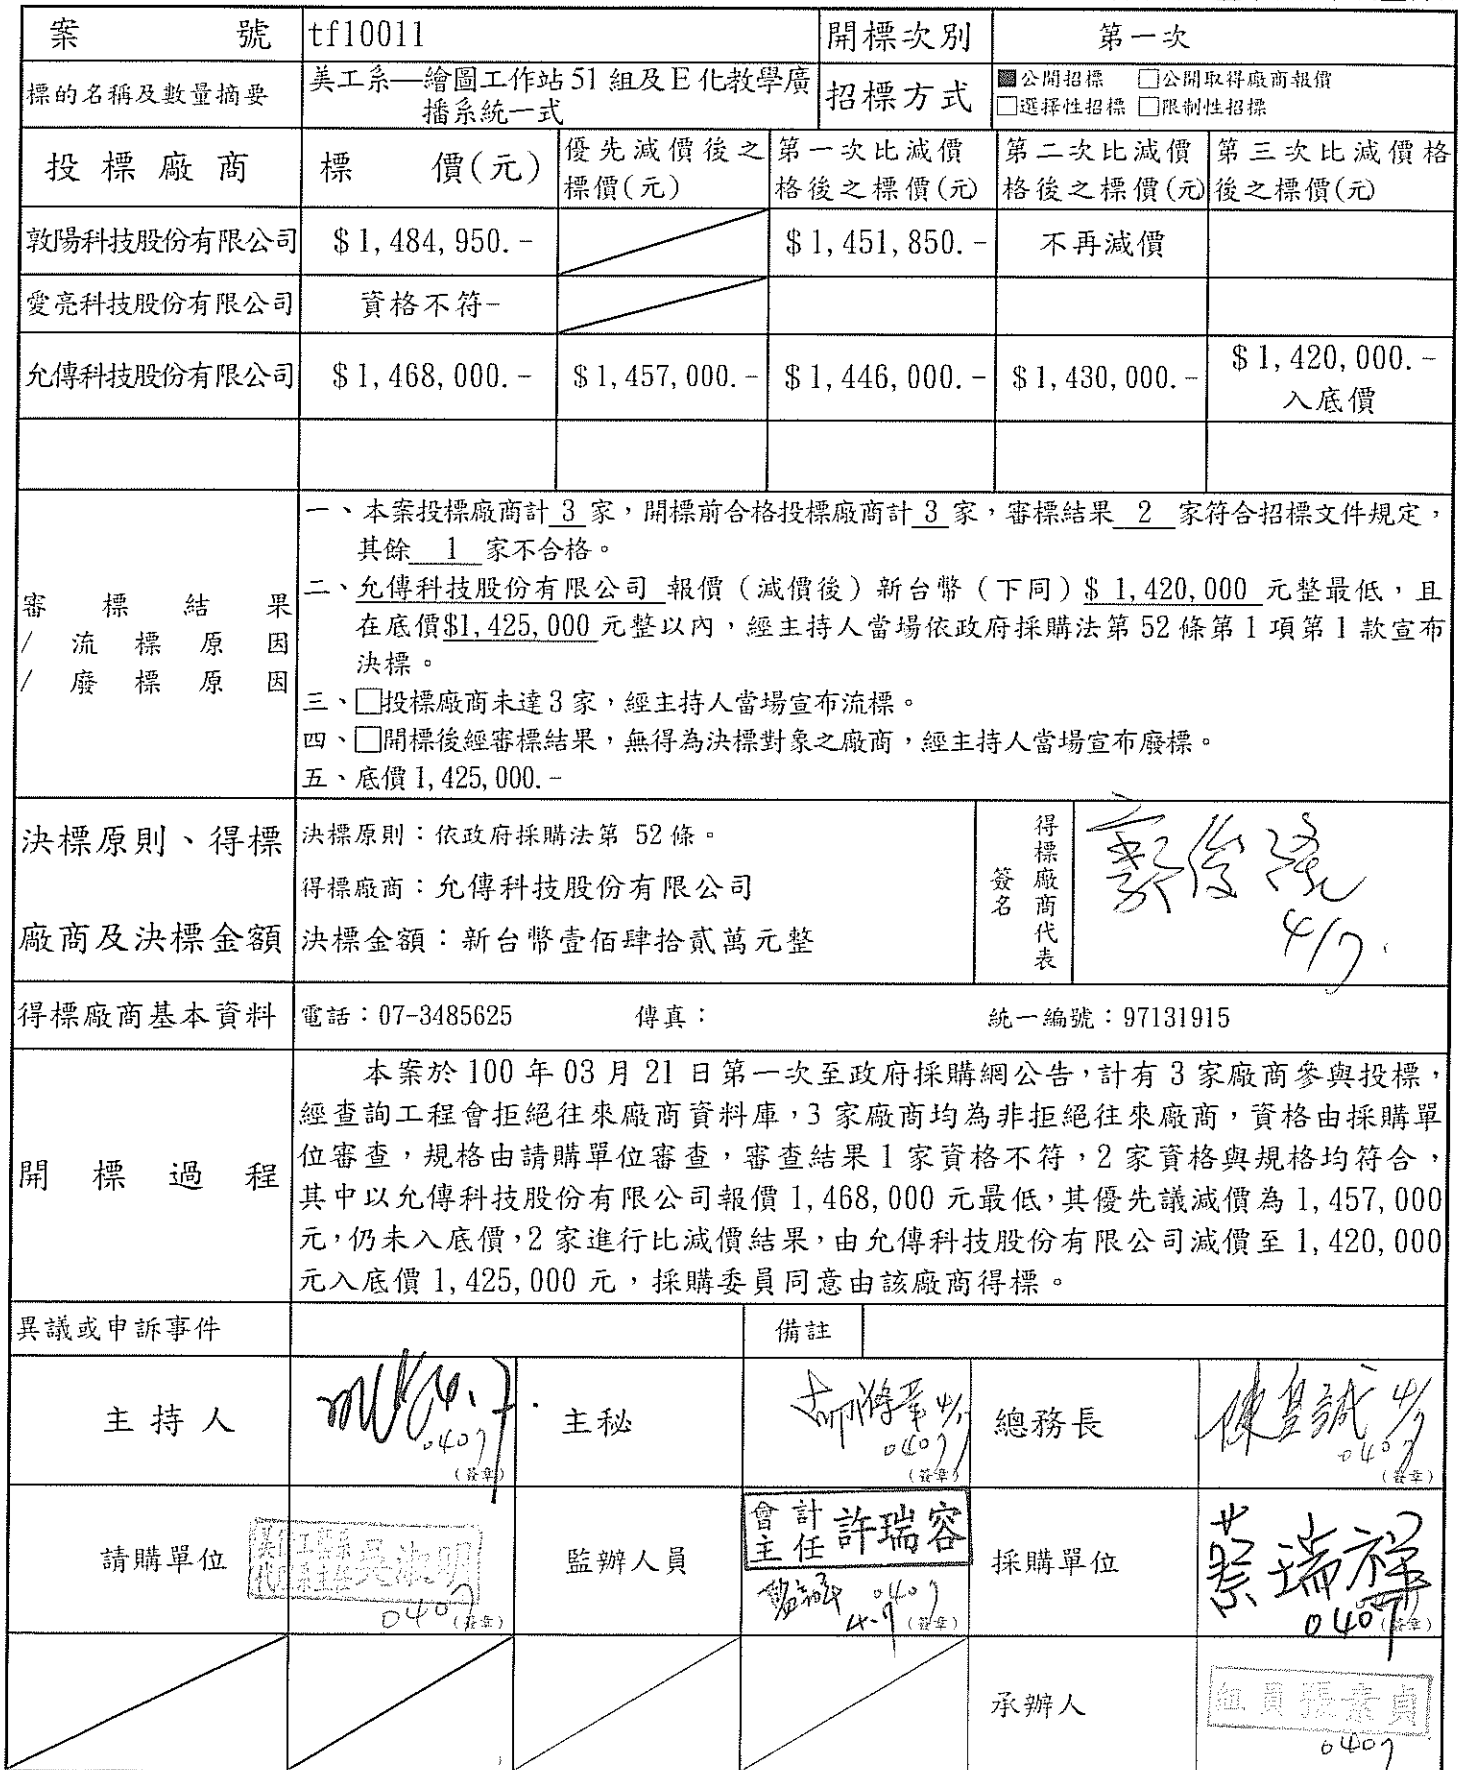 案號 tf10011 開標次別 第一次
標的名稱及數量摘要 美工系—繪圖工作站51組及E化教學廣
播系統一式
招標方式 ■公開招標 □公開取得廠商報價
□選擇性招標 □限制性招標
投標廠商 標價(元) 優先減價後之 第一次比減價 第二次比減價 第三次比減價格
標價(元) 格後之標價(元) 格後之標價(元) 後之標價(元)
敦陽科技股份有限公司 $1,484,950.- $1,451,850.- 不再減價
愛亮科技股份有限公司 資格不符-
允傳科技股份有限公司 $1,468,000.- $1,457,000.- $1,446,000.- $1,430,000.- $1,420,000.-
入底價
審標結果
/流標原因
/廢標原因
一、本案投標廠商計 3 家，開標前合格投標廠商計 3 家，審標結果 2 家符合招標文件規定，
其餘 1 家不合格。
二、允傳科技股份有限公司 報價（減價後）新台幣（下同）$ 1,420,000 元整最低，且
在底價$1,425,000 元整以內，經主持人當場依政府採購法第 52 條第 1 項第 1 款宣布
決標。
三、□投標廠商未達3家，經主持人當場宣布流標。
四、□開標後經審標結果，無得為決標對象之廠商，經主持人當場宣布廢標。
五、底價1,425,000.-
決標原則、得標
廠商及決標金額
決標原則：依政府採購法第 52條。
得標廠商：允傳科技股份有限公司
決標金額：新台幣壹佰肆拾貳萬元整
得標廠商代表
簽名
4/7
得標廠商基本資料 電話：07-3485625 傳真： 統一編號：97131915
開標過程
本案於 100 年 03 月 21 日第一次至政府採購網公告，計有 3 家廠商參與投標，
經查詢工程會拒絕往來廠商資料庫，3 家廠商均為非拒絕往來廠商，資格由採購單
位審查，規格由請購單位審查，審查結果 1 家資格不符，2 家資格與規格均符合，
其中以允傳科技股份有限公司報價 1,468,000 元最低，其優先議減價為 1,457,000
元，仍未入底價，2 家進行比減價結果，由允傳科技股份有限公司減價至 1,420,000
元入底價 1,425,000 元，採購委員同意由該廠商得標。
異議或申訴事件 備註
主持人 0407 (簽章) 主秘 4/7 0407 (簽章) 總務長 4/7 0407 (簽章)
請購單位 吳淑明 0407 (簽章) 監辦人員 會計主任 許瑞容 0407 4-7 (簽章) 採購單位 蔡瑞祥 0407 (簽章)
承辦人 組員張素貞 0407